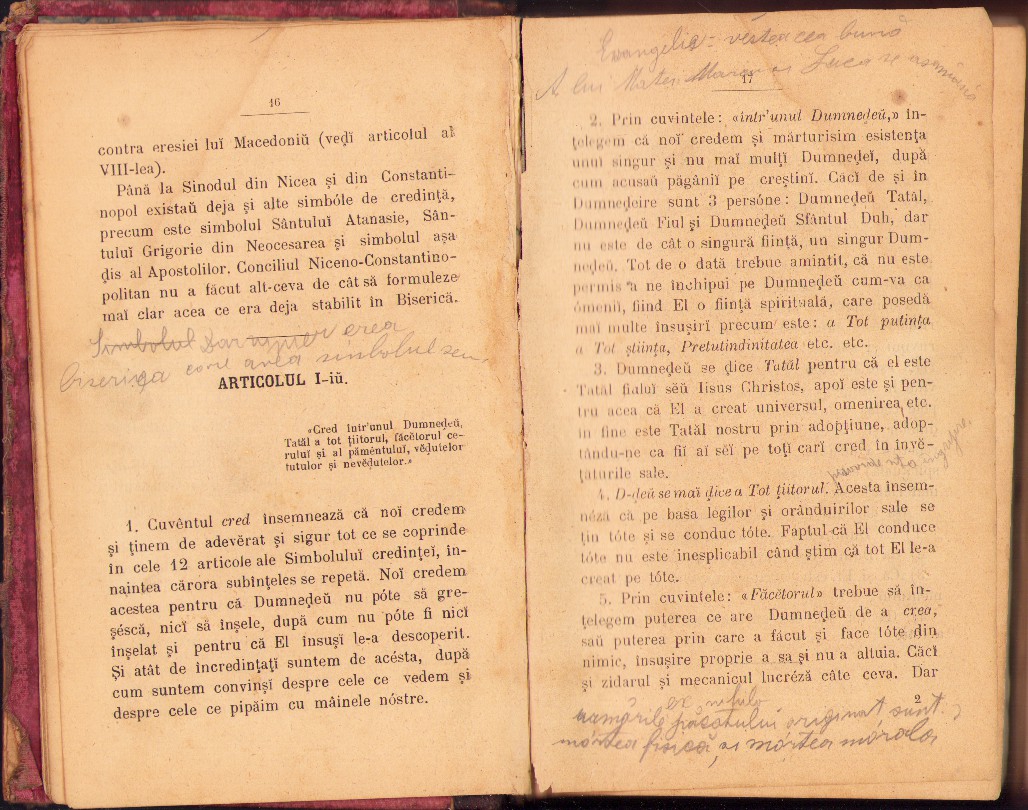 16
contra eresiei luĭ Macedoniŭ (veḑĭ articolul al
VIII-lea).
Până la Sinodul din Nicea și din Constanti-
nopol existaŭ deja și alte simbóle de credință,
precum este simbolul Sântuluĭ Atanasie, Sân-
tuluĭ Grigorie din Neocesarea și simbolul așa
ḑis al Apostolilor. Conciliul Niceno-Constantino-
politan nu a făcut alt-ceva de cât să formuleze
maĭ clar acea ce era deja stabilit în Biserică.
Simbolul era
Biserica avea simbolul seu
ARTICOLUL I-iŭ.
«Cred într'unul Dumneḑeŭ,
Tatăl a tot țiitorul, făcĕtorul ce-
ruluĭ și al pămêntuluĭ, vĕḑutelor
tutulor și nevĕḑutelor.»
1. Cuvêntul cred însemnează că noĭ credem
și ținem de adevĕrat și sigur tot ce se coprinde
în cele 12 articole ale Simboluluĭ credințeĭ, în-
naintea cărora subînțeles se repetă. Noĭ credem
acestea pentru că Dumneḑeŭ nu póte să gre-
șéscă, nicĭ să înșele, după cum nu póte fi nicĭ
înșelat și pentru că El însușĭ le-a descoperit.
Și atât de încredințațĭ suntem de acésta, după
cum suntem convinșĭ despre cele ce vedem și
despre cele ce pipăim cu mâinele nóstre.
Evangelie = vestea cea bună
A lui Matei Marcu și Luca se aseamănă
17
2. Prin cuvintele: «intr'unul Dumneḑeŭ,» în-
țelegem că noĭ credem și mărturisim esistența
unuĭ singur și nu maĭ mulțĭ Dumneḑeĭ, după
cum acusaŭ păgâniĭ pe creștinĭ. Căcĭ de și în
Dumneḑeire sunt 3 persóne: Dumneḑeŭ Tatăl,
Dumneḑeŭ Fiul și Dumneḑeŭ Sfântul Duh, dar
nu este de cât o singură ființă, un singur Dum-
neḑeŭ. Tot de o dată trebue amintit, că nu este
permis a ne închipui pe Dumneḑeŭ cum-va ca
ómeniĭ, fiind El o ființă spirituală, care posedă
maĭ multe însușirĭ precum este: a Tot putința
a Tot științа, Pretutindinitatea etc. etc.
3. Dumneḑeŭ se ḑice Tatăl pentru că el este
Tatăl fialuĭ sĕŭ Iisus Christos, apoĭ este și pen-
tru acea că El a creat universul, omenirea etc.
în fine este Tatăl nostru prin adopțiune, adop-
tându-ne ca fiĭ aĭ sĕĭ pe toțĭ carĭ cred în învĕ-
țăturile sale.
4. D-ḑeŭ se maĭ ḑice a Tot țiitorul. Acesta însem-
néză că pe basa legilor și orânduirilor sale se
țin tóte și se conduc tóte. Faptul-că El conduce
tóte nu este inesplicabil când știm că tot El le-a
creat pe tóte.
5. Prin cuvintele: «Făcĕtorul» trebue să în-
țelegem puterea ce are Dumneḑeŭ de a crea,
saŭ puterea prin care a făcut și face tóte din
nimic, însușire proprie a sa și nu a altuia. Căcĭ
și zidarul și mecanicul lucréză câte ceva. Dar
2
ex nihilo
urmările păcatului original sunt:
mórtea fisică și mórtea morala